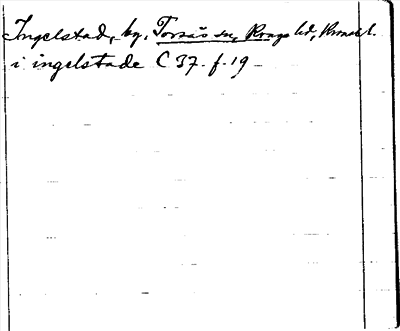 Ingelstad, by, Torsås sn, Konga hd, Kronob l.
i ingelstade C 37. f. 19 –